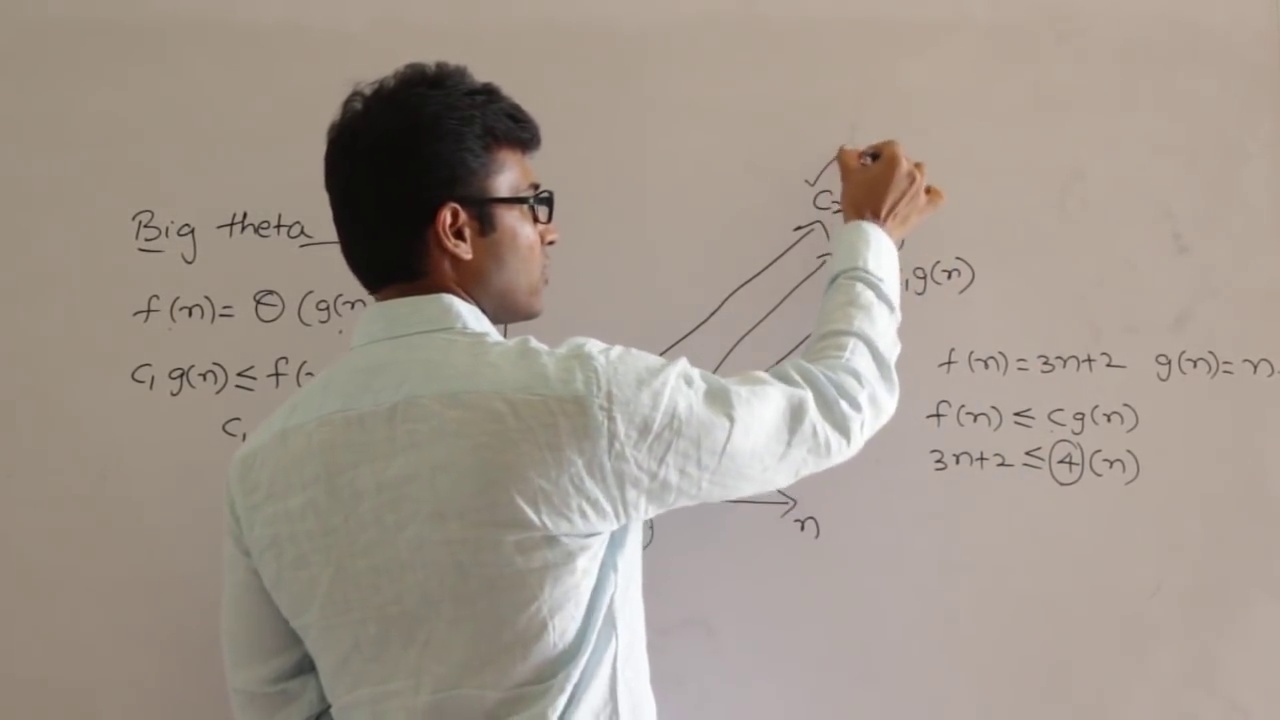 Big theta
f(n)= Θ (g(n
C₁ g(n) ≤ f(
C₁
C₂
₁g(n)
n
f(n)=3n+2 g(n)=n.
f(n) ≤ cg(n)
3n+2 ≤ 4(n)